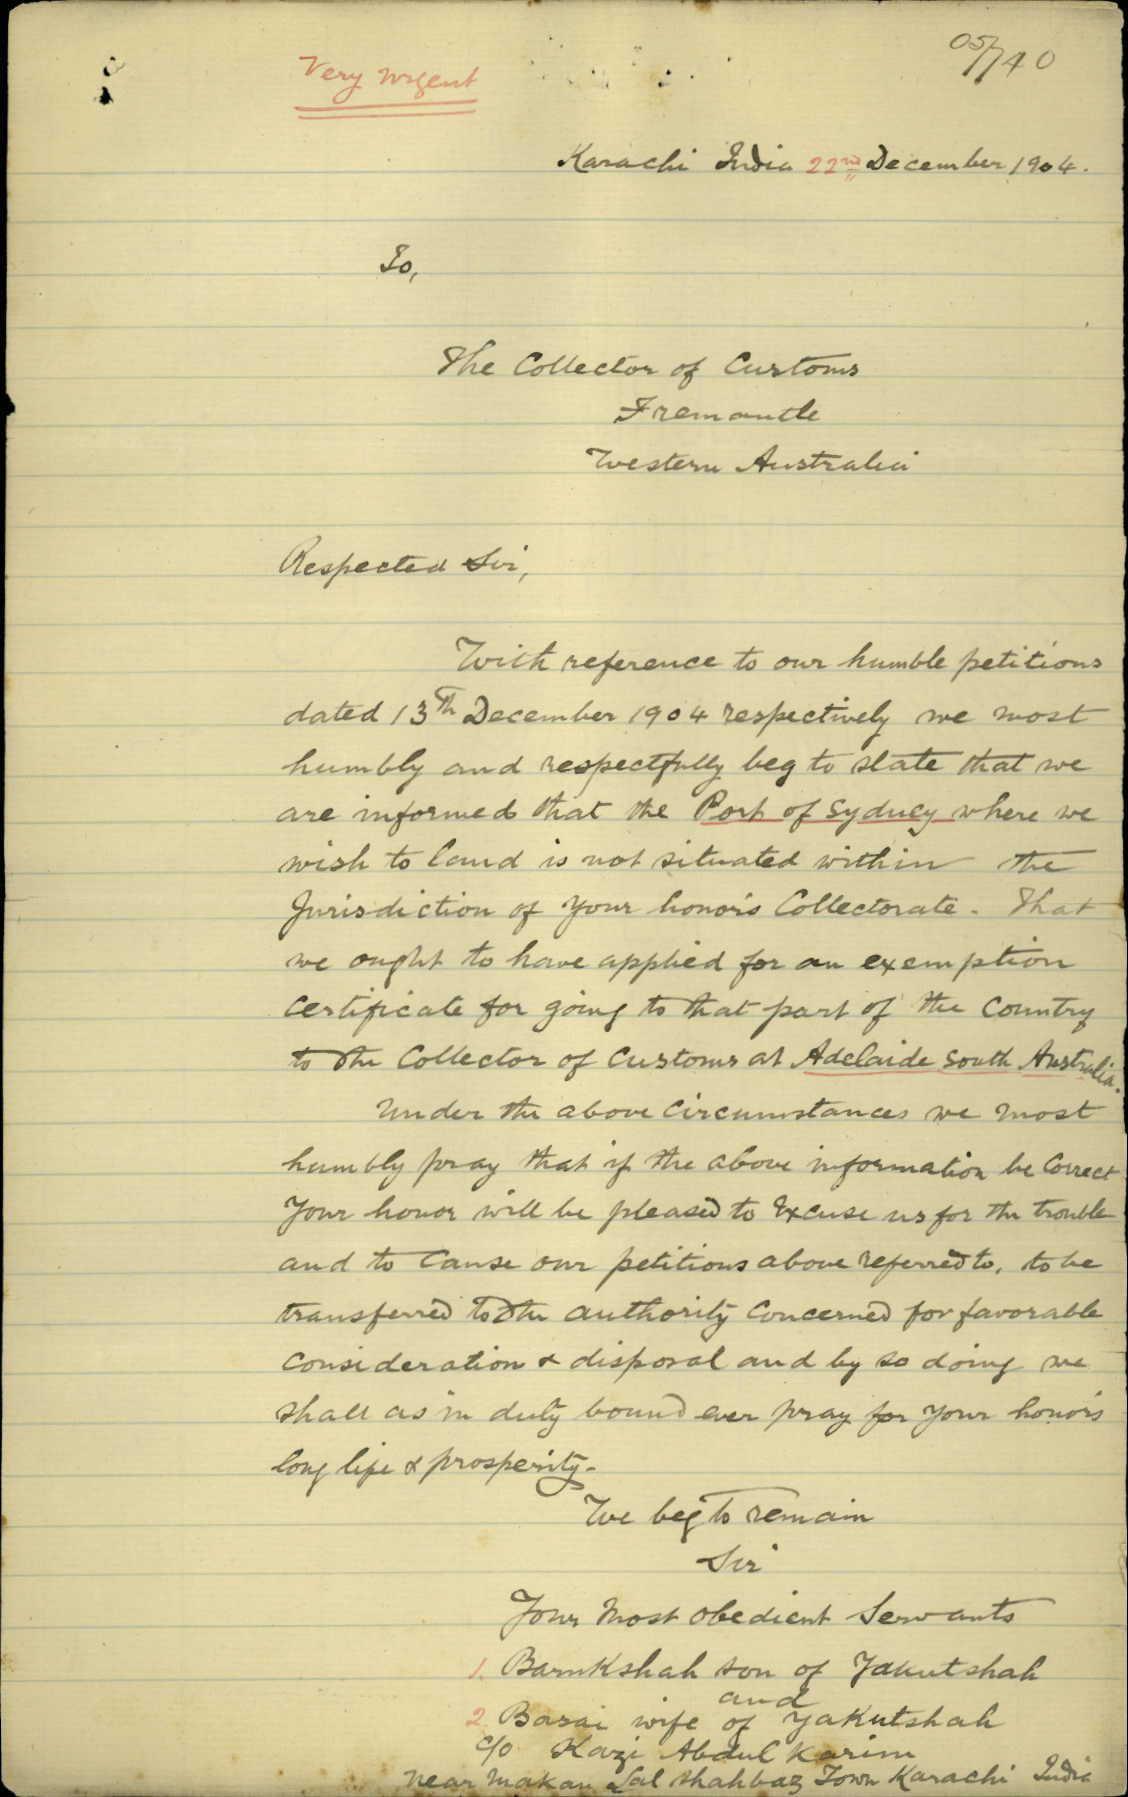 05/740
Very Urgent
Karachi India 22nd December 1904.
To,
The Collector of Customs
Fremantle
Western Australia
Respected Sir,
With reference to our humble petitions
dated 13th December 1904 respectively we most
humbly and respectfully beg to state that we
are informed that the Port of Sydney where we
wish to land is not situated within the
Jurisdiction of your honor's Collectorate. That
we ought to have applied for an exemption
certificate for going to that part of the Country
to the Collector of Customs at Adelaide South Australia.
Under the above circumstances we most
humbly pray that if the above information be correct
Your honor will be pleased to Excuse us for the trouble
and to cause our petitions above referred to, to be
transferred to the authority concerned for favorable
consideration & disposal and by so doing we
shall as in duty bound ever pray for your honor's
long life & prosperity-
We beg to remain
Sir
Your most obedient Servants
1. Barukshah son of Yakutshah
and
2 Basai wife of Yakutshah
c/o Kazi Abdul Karim
near Makan Lal Shahbaz Town Karachi India